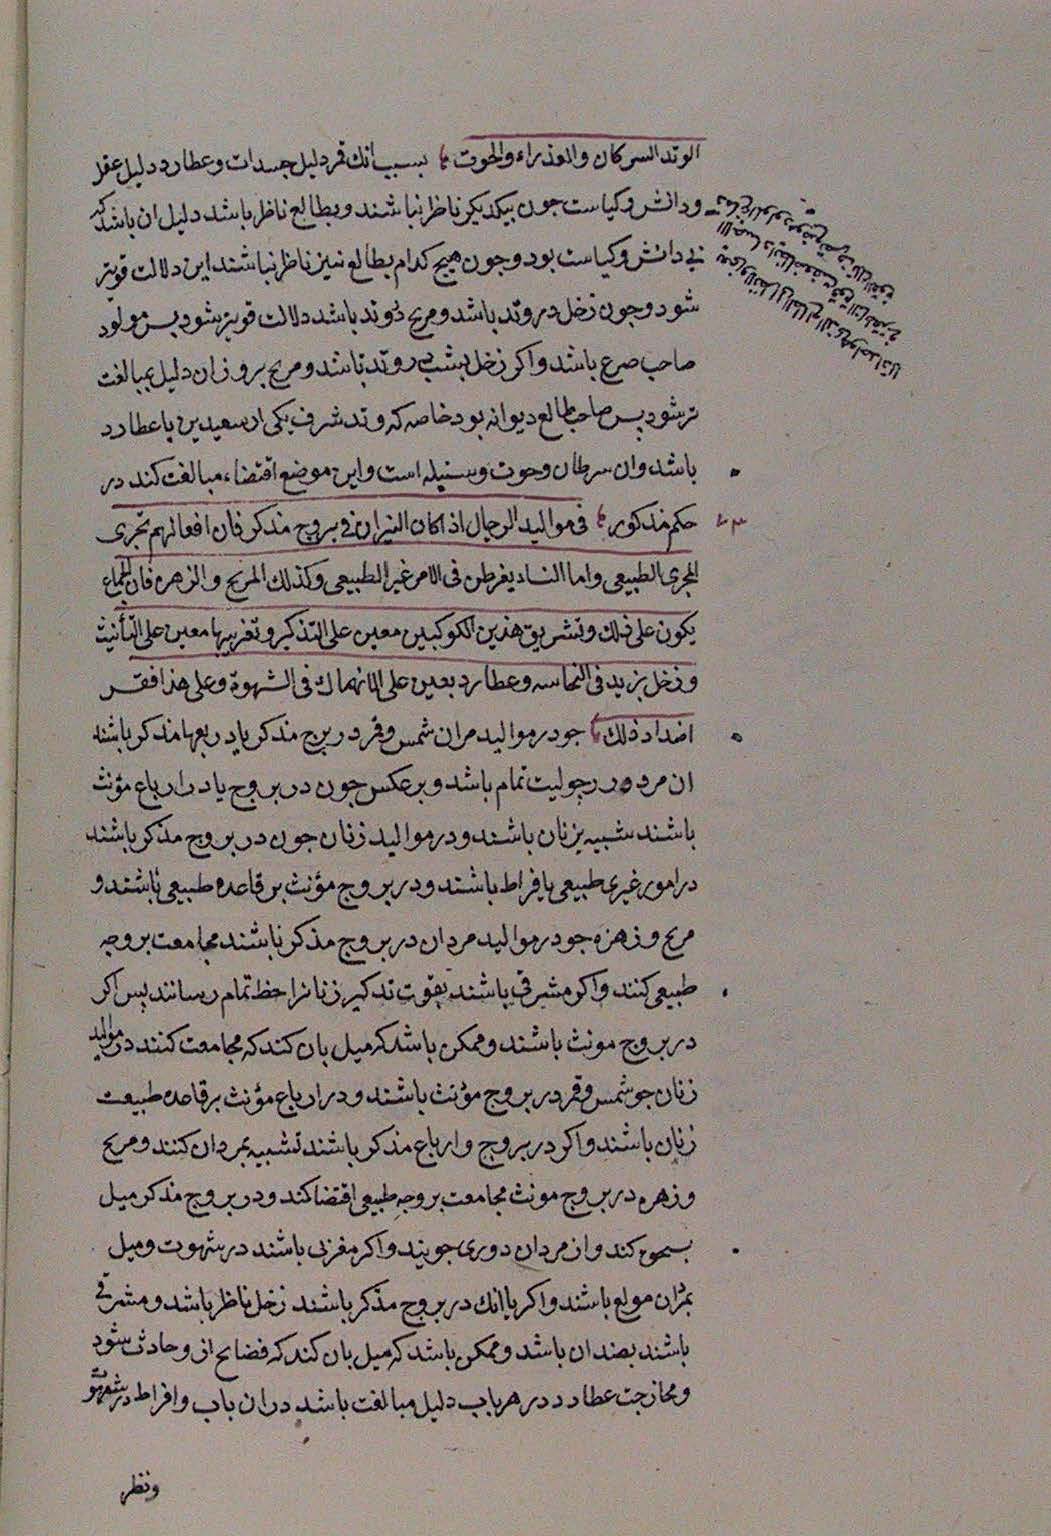 الوتد السرطان والعذراء والحوت بسبب آنك قمر دلیل جسدات و عطارد دلیل عقل
و دانش و کیاست جون بیکدیکر ناظر نباشند و بطالع ناظر باشد دلیل ان باشد که
بی دانش و کیاست بود و جون هیچ کدام بطالع نیز ناظر نباشند این دلالت قویتر
شود و جون زحل در وتد باشد و مریخ در وتد باشد دلالت قویتر شود بس مولود
صاحب صرع باشد و اکر زحل بشب در وتد باشد و مریخ بروز ان دلیل بمبالغت
تر شود پس صاحب طالع دیوانه بود خاصه که وتد شرف یکی از سعیدین یا عطارد
باشد و ان سرطان و حوت و سنبله است و این موضع اقتضاء مبالغت کند در
حکم مذکور فی موالید الرجال اذا کان النیران فی بروج مذکر فان افعالهم تجری
المجری الطبیعی و اما النساء یفرطن فی الامر غیر الطبیعی و کذلك المریخ والزهره فان الجماع
یکون علی ذلك و تشریق هذین الکوکبین معین علی التذکیر و تغریبها معین علی التأنیث
و زحل یزید فی النحاسه و عطارد یعین علی الانهماك فی الشهوة و علی هذا فقس
اضداد ذلك جو در موالید مردان شمس و قمر در برج مذکر یا در ربعها مذکر باشند
ان مرد در رجولیت تمام باشد و بر عکس جون در بروج یا در ارباع مؤنث
باشند شبیه بزنان باشند و در موالید زنان جون در بروج مذکر باشند
در امور غیری طبیعی بافراط باشند و در بروج مؤنث بر قاعده طبیعی باشند و
مریخ و زهره جو در موالید مردان در بروج مذکر باشند مجامعت بر وجه
طبیعی کنند و اکر مشرقی باشند بقوت تذکیر زنانرا حظ تمام رسانند پس اکر
در بروج مونث باشند و ممکن باشد که میل بان کند که مجامعت کنند در موالید
زنان جو شمس و قمر در بروج مؤنث باشند و در ارباع مؤنث بر قاعده طبیعت
زنان باشند و اکر در بروج و ارباع مذکر باشند تشبیه بمردان کنند و مریخ
و زهره در بروج مونث مجامعت بر وجه طبیعی اقتضا کند و در بروج مذکر میل
بسحق کند و از مردان دوری جویند و اکر مغربی باشند در شهوت و میل
بمردان مولع باشند و اکر با انك در بروج مذکر باشند زحل ناظر باشد و مشرقی
باشند بضد ان باشد و ممکن باشد که میل بان کند که فضایح از و حادث شود
و ممازجت عطارد در هر باب دلیل مبالغت باشد در ان باب و افراط در شهوت
و نظر